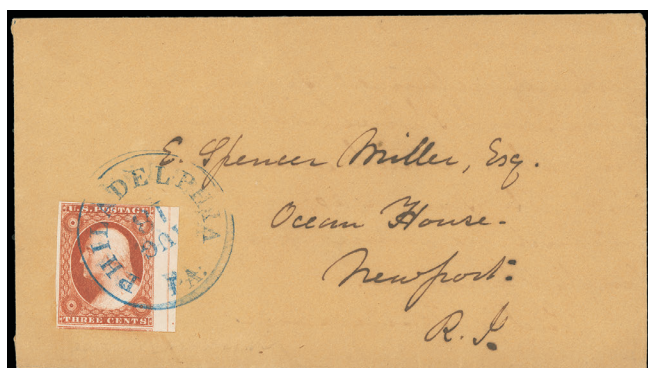 E. Spencer Miller, Esq.
Ocean House.
Newport.
R. I.
PHILADELPHIA
PA.
AUG
U.S. POSTAGE
THREE CENTS